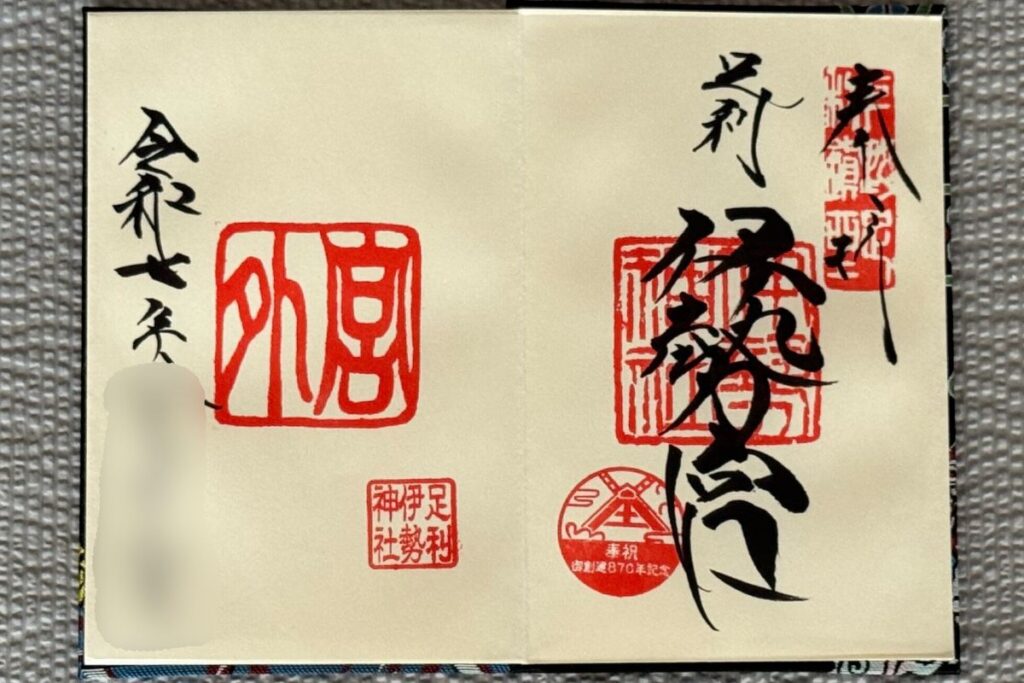 奉拝
足利
伊勢宮
奉祝
御創建870年記念
外宮
足利
伊勢
神社
令和七年